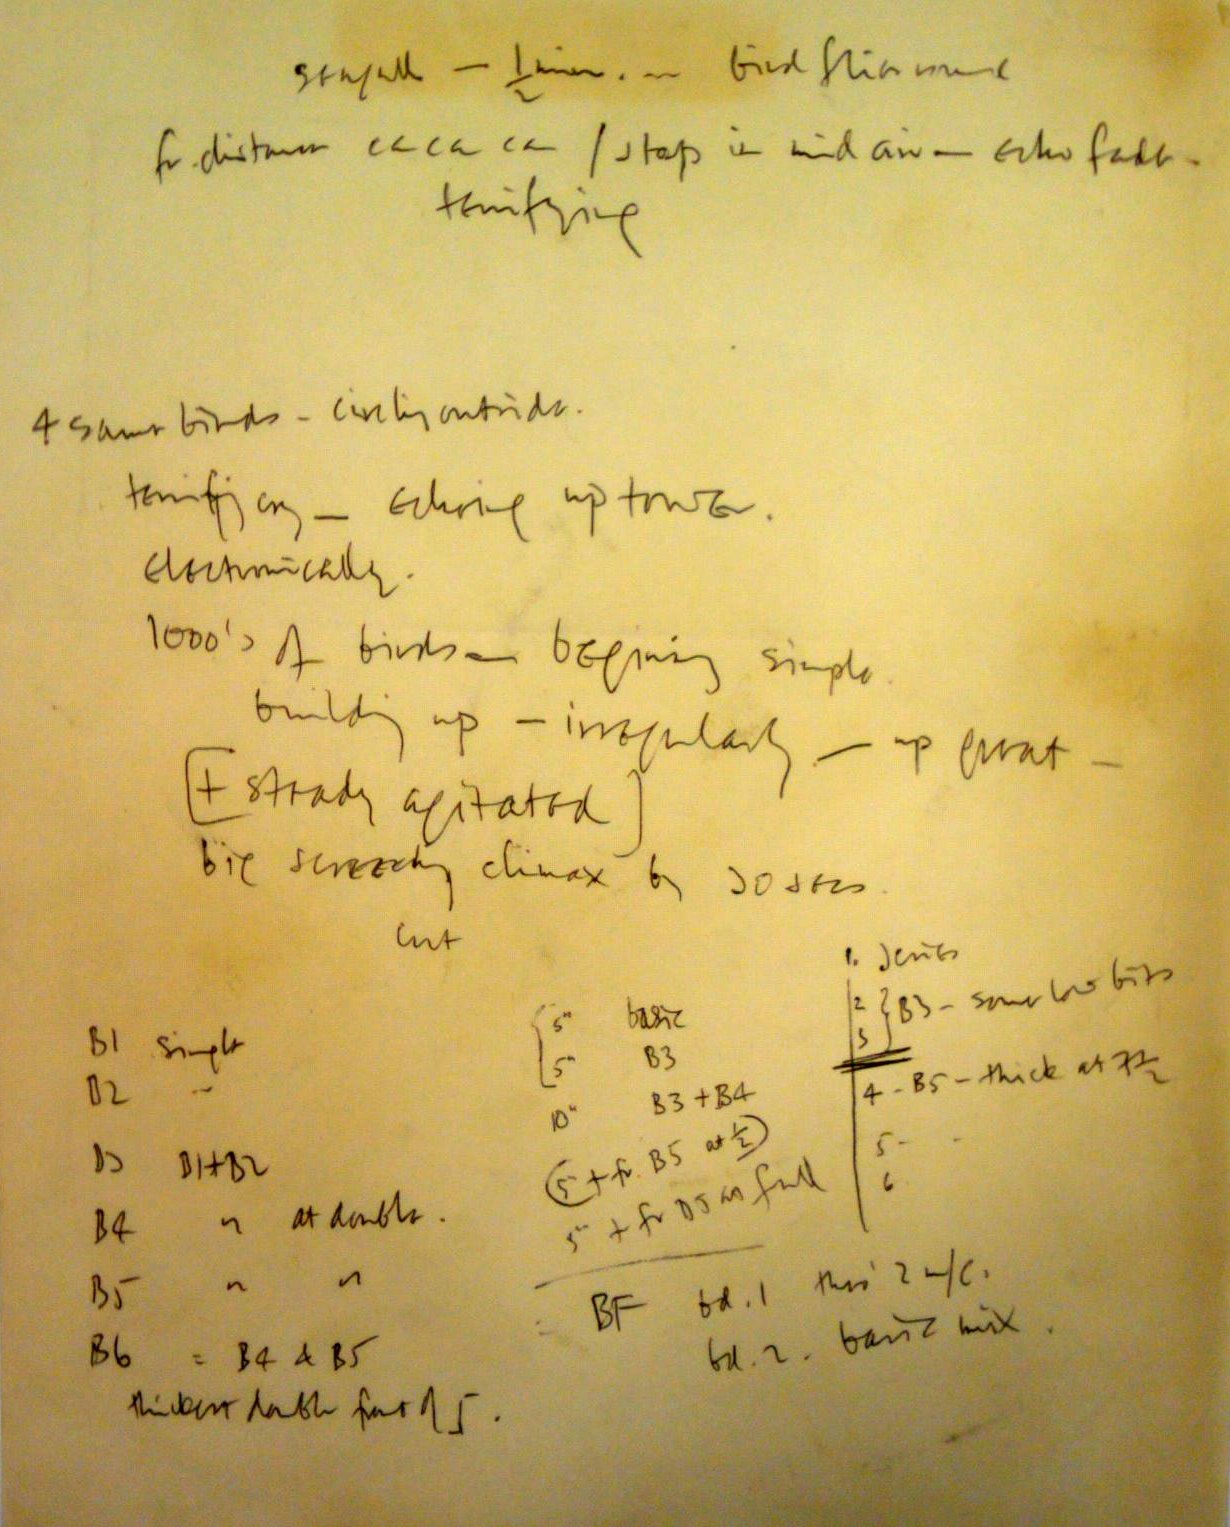 seagull — 1/2 min. — bird flies round
fr. distance ca ca ca ca / stops in mid air — echo fade -
terrifying
4 same birds - circling outside.
terrifying cry — echoing up tower.
electronically.
1000's of birds — begining simple.
building up — irregularly — up great —
[+ steady agitated]
big screechy climax by 30 secs.
cut
B1 simple
B2 "
B3 B1+B2
B4 " at double.
B5 " "
B6 = B4 & B5
thickest double fast of 5.
5" basic
5" B3
10" B3 + B4
(5" + fr. B5 at 1/2)
5" + fr B5 as full
BF bd. 1 this 2 m/c.
bd. 2. basic mix.
1. series
2
3 } B3 - some low bits
4 - B5 - thick at 7 1/2
5 - -
6